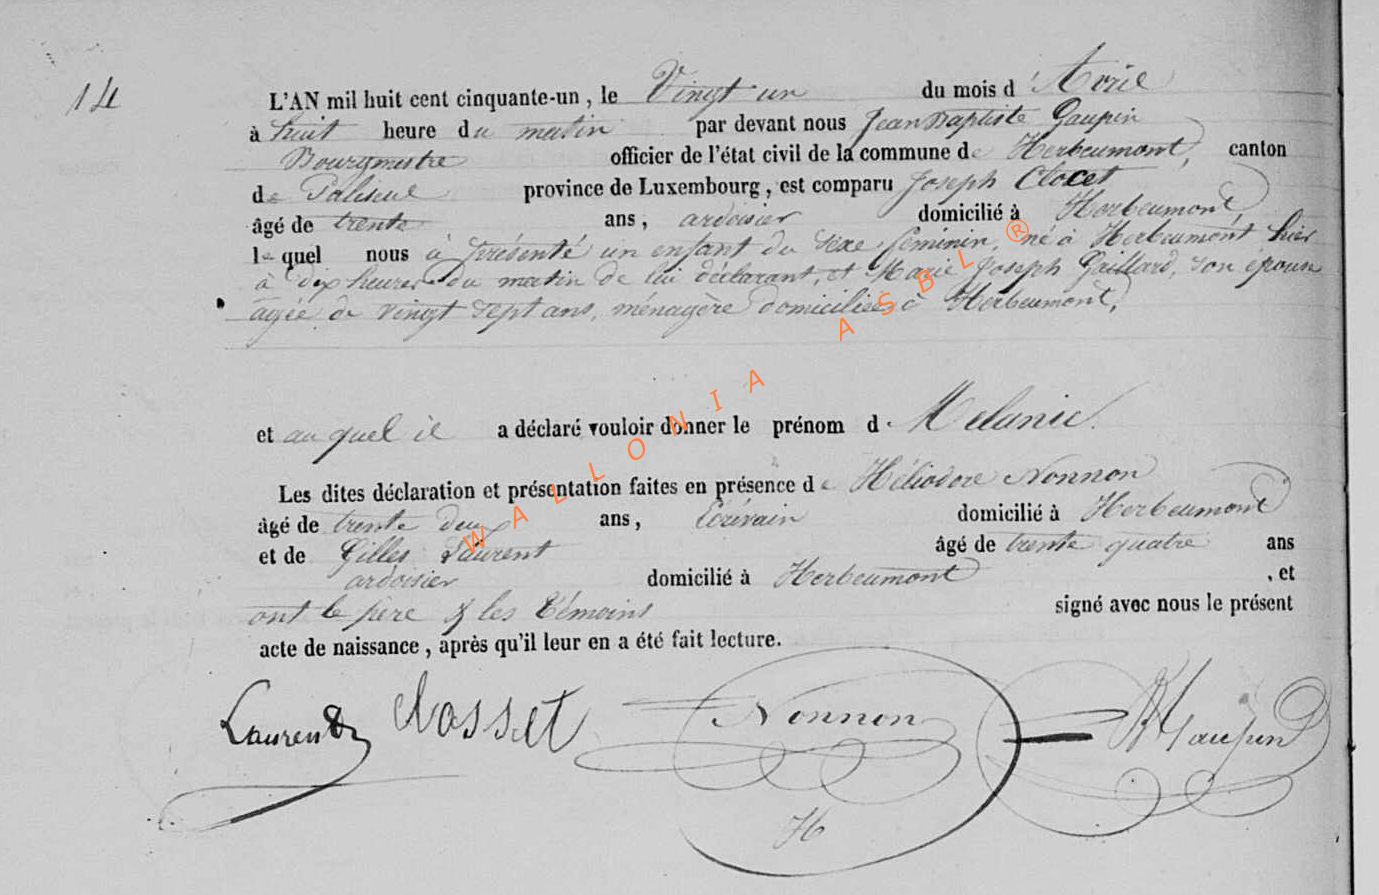 14
L'AN mil huit cent cinquante-un, le Vingt un du mois d'Avril
à huit heure du matin par devant nous Jean Baptiste Gaupin
Bourgmestre officier de l'état civil de la commune de Herbeumont, canton
de Paliseul province de Luxembourg, est comparu Joseph Clocet
âgé de trente ans, ardoisier domicilié à Herbeumont
lequel nous à présenté un enfant du sexe féminin, né à Herbeumont hier
à dix heures du matin de lui déclarant, et Marie Joseph Gaillard, son épouse
agée de vingt sept ans, ménagère domiciliée à Herbeumont,
et au quel il a déclaré vouloir donner le prénom de Melanie.
Les dites déclaration et présentation faites en présence de Héliodore Nonnon
âgé de trente deux ans, Ecrivain domicilié à Herbeumont
et de Gilles Laurent âgé de trente quatre ans
ardoisier domicilié à Herbeumont, et
ont le père & les témoins signé avec nous le présent
acte de naissance, après qu'il leur en a été fait lecture.
Laurent Classet Nonnon Gaupin
H
WALLONIA ASBL ®